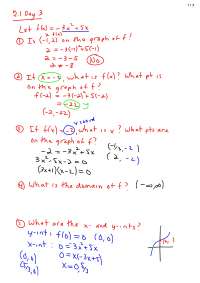 2.1 Day 3
Let f(x) = -3x² + 5x
① Is (-1, 2) on the graph of f?
2 = -3(-1)² + 5(-1)
2 = -3 - 5
2 ≠ -8
No
② If x = -2, what is f(x)? What pt is
on the graph of f?
f(-2) = -3(-2)² + 5(-2)
= -22
(-2, -22)
③ If f(x) = -2 what is x? What pts are
on the graph of f?
-2 = -3x² + 5x
3x² - 5x - 2 = 0
(3x+1)(x-2) = 0
(-1/3, -2)
(2, -2)
④ What is the domain of f? (-∞, ∞)
⑤ What are the x- and y-ints?
y-int: f(0) = 0 (0,0)
x-int: 0 = -3x² + 5x
0 = x(-3x+5)
x = 0, 5/3
(0,0)
(5/3, 0)